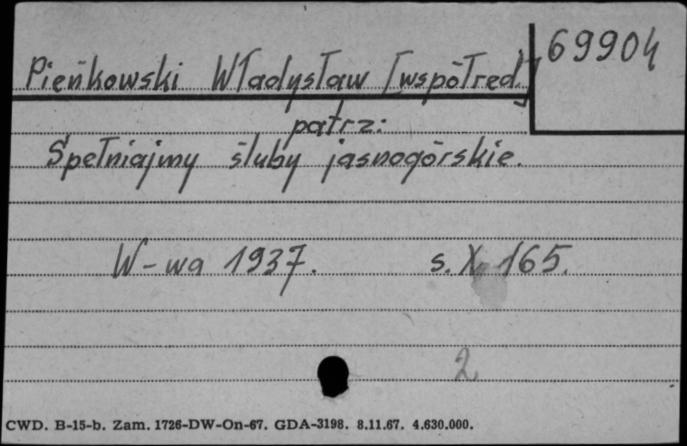 69904
Pieńkowski Władysław [współred.]
patrz:
Spełniajmy śluby jasnogórskie.
W-wa 1937. s. X, 165.
2
CWD. B-15-b. Zam. 1726-DW-On-67. GDA-3198. 8.11.67. 4.630.000.